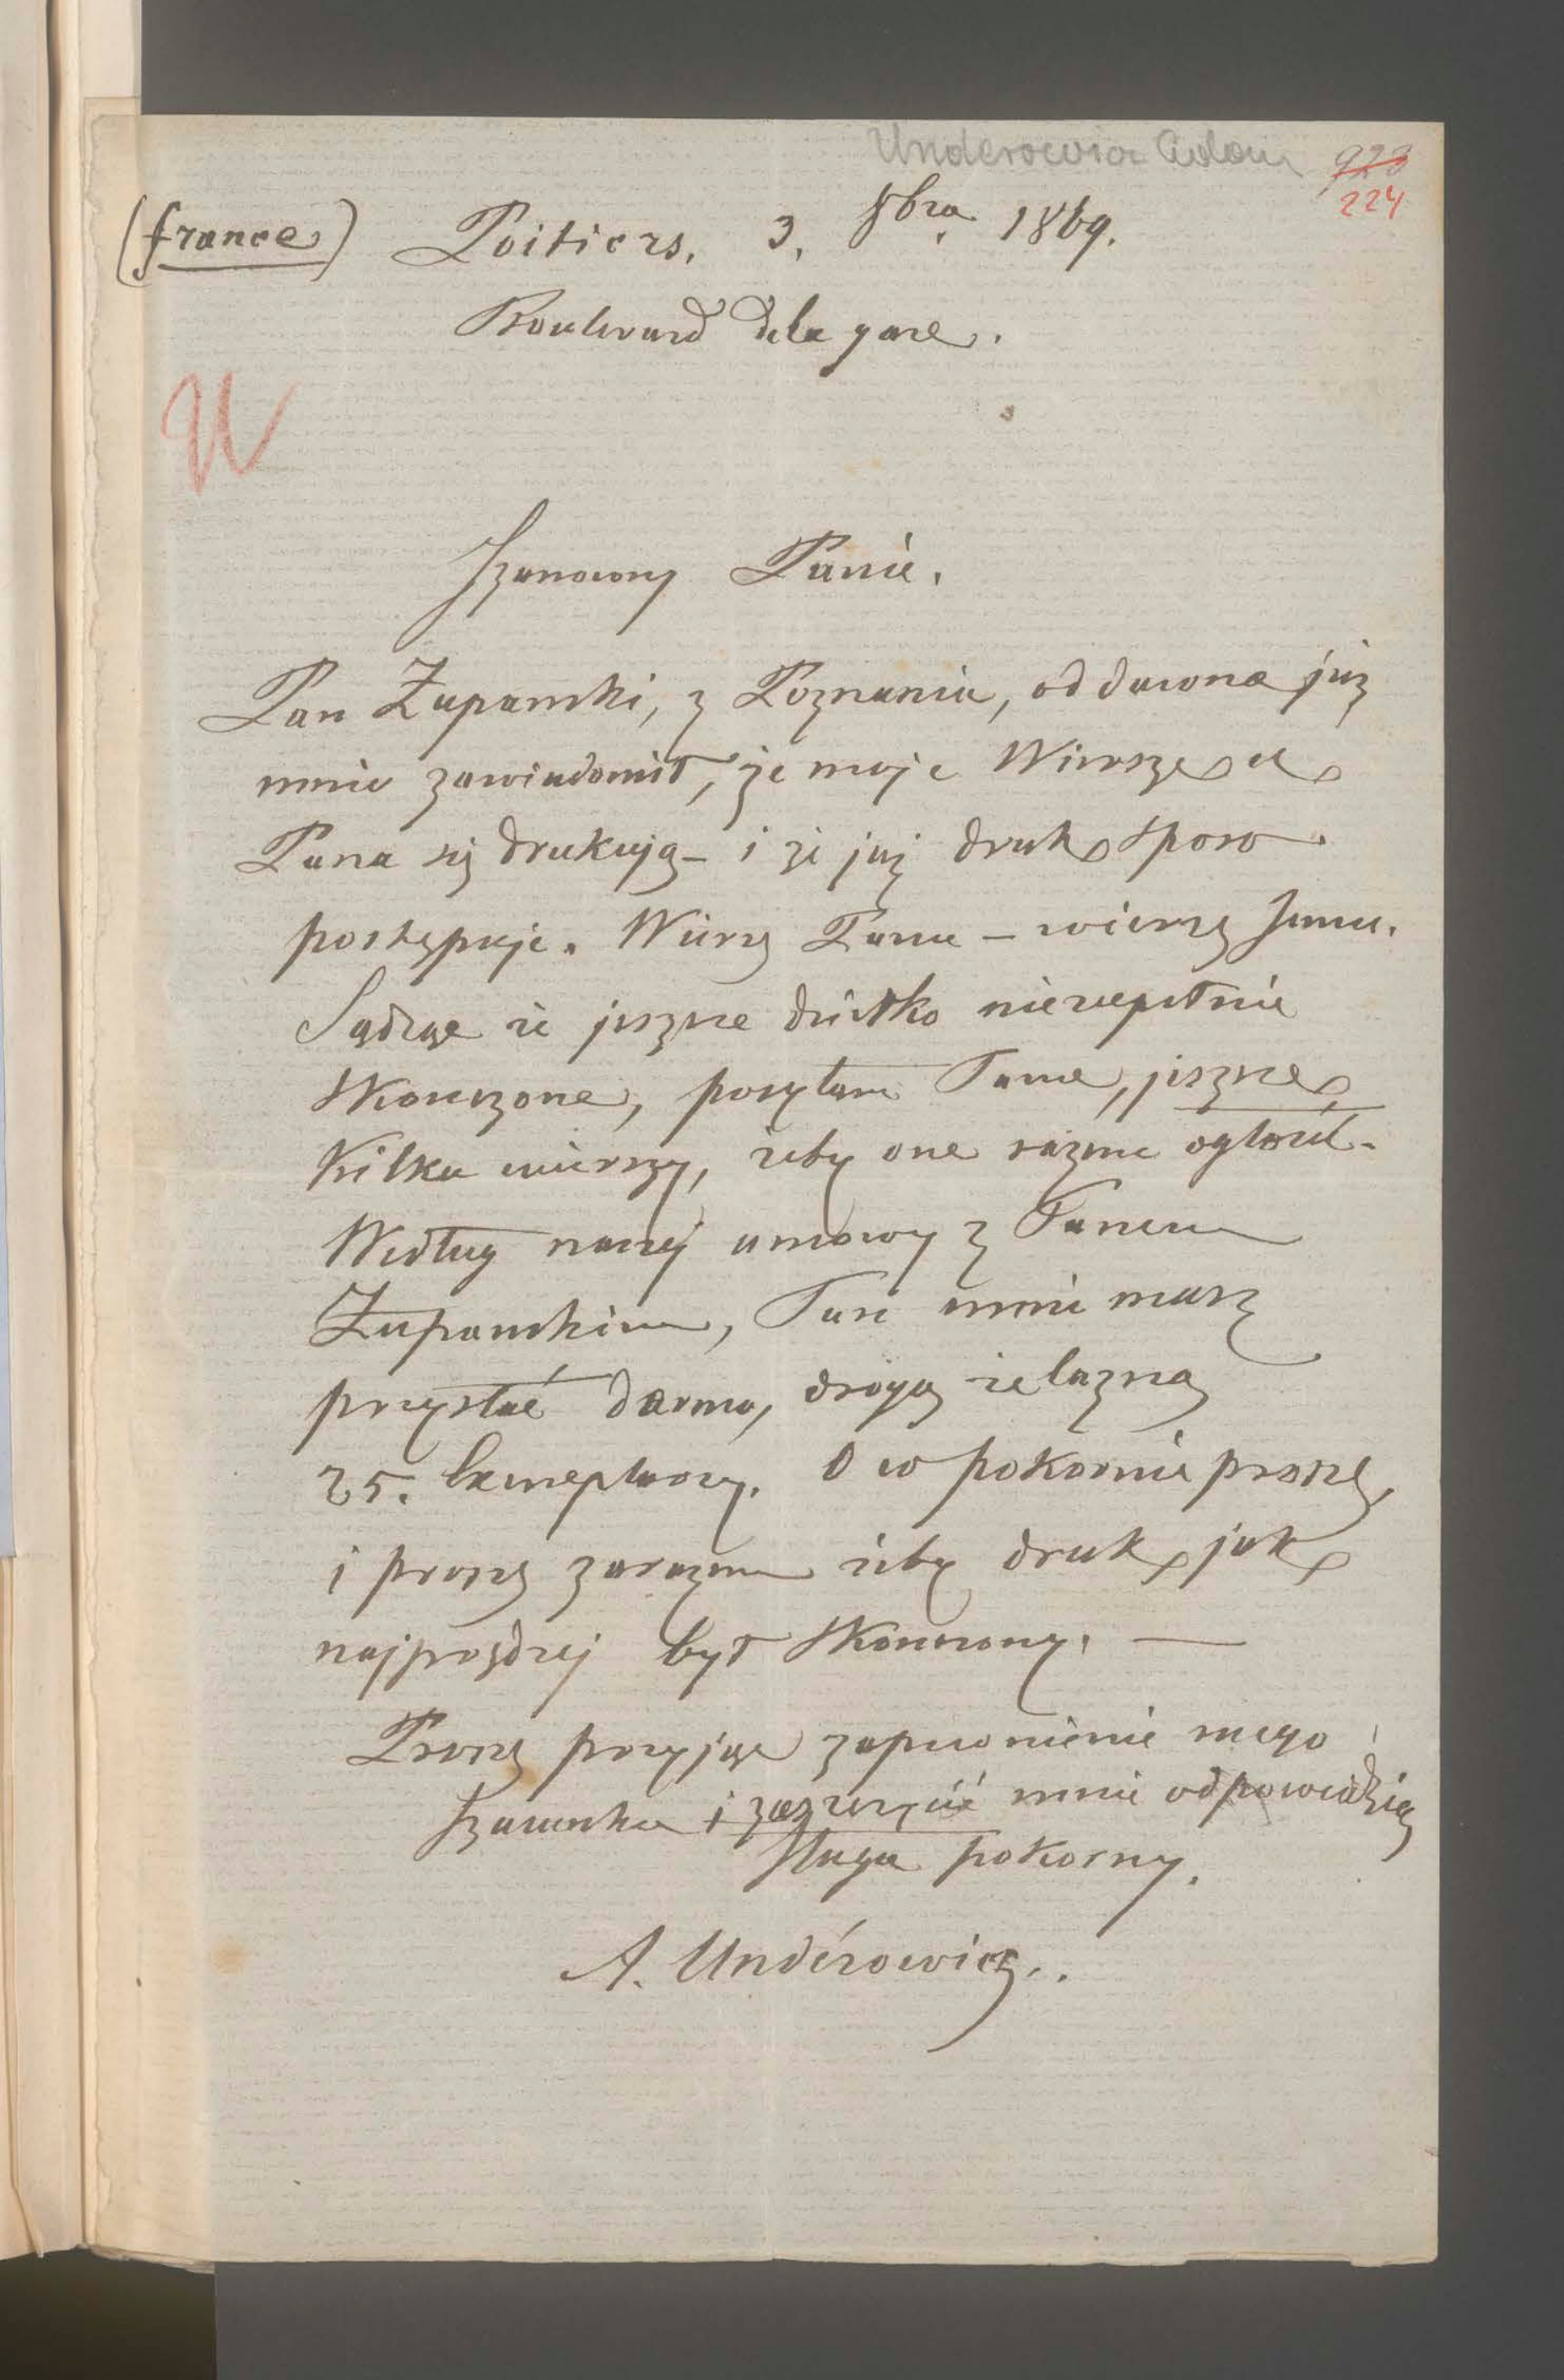 Underowicz Adam
923
224
(france) Poitiers. 3. 8bra. 1869.
Boulevard de la gare.
U
Szanowny Panie.
Pan Żupanski, z Poznania, od dawna już
mnie zawiadomił, że moje Wiersze u
Pana się drukują – i że już druk sporo
postępuje. Wierzę Panu – wierzę Jemu.
Sądząc że jeszcze dziełko niezupełnie
skonczone, posyłam Panu, jeszcze
kilka wierszy, żeby one razem ogłosić.
Według naszej umowy z Panem
Żupanskim, Pan mnie masz
przysłać darmo, drogą żelazną
25. Exemplarzy. O co pokornie proszę,
i proszę zarazem żeby druk jak
najprędzej był skonczony. —
Proszę przyjąć zapewnienie mego
Szacunku i zaszczycić mnie odpowiedzią
Sługa pokorny.
A. Undérowicz..